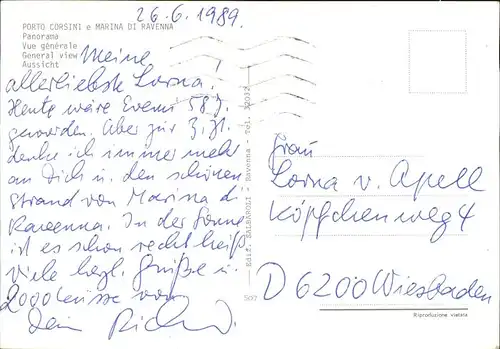 26.6.1989.
PORTO CORSINI e MARINA DI RAVENNA
Panorama
Vue générale
General view
Aussicht
Meine
allerliebste Lorna!
Heute wäre Evemi 58 J.
geworden. Aber zur Z. Zt.
denke ich immer mehr
an Dich u. den schönen
Strand von Marina di
Ravenna. In der Sonne
ist es schon recht heiß
Viele herzl. Grüße u.
2000 Küsse von
Dein Richard.
Ediz. SALBAROLI - Ravenna - Tel.
507
Frau
Lorna v. Apell
Köpfchenweg 4
D 6200 Wiesbaden
Riproduzione vietata